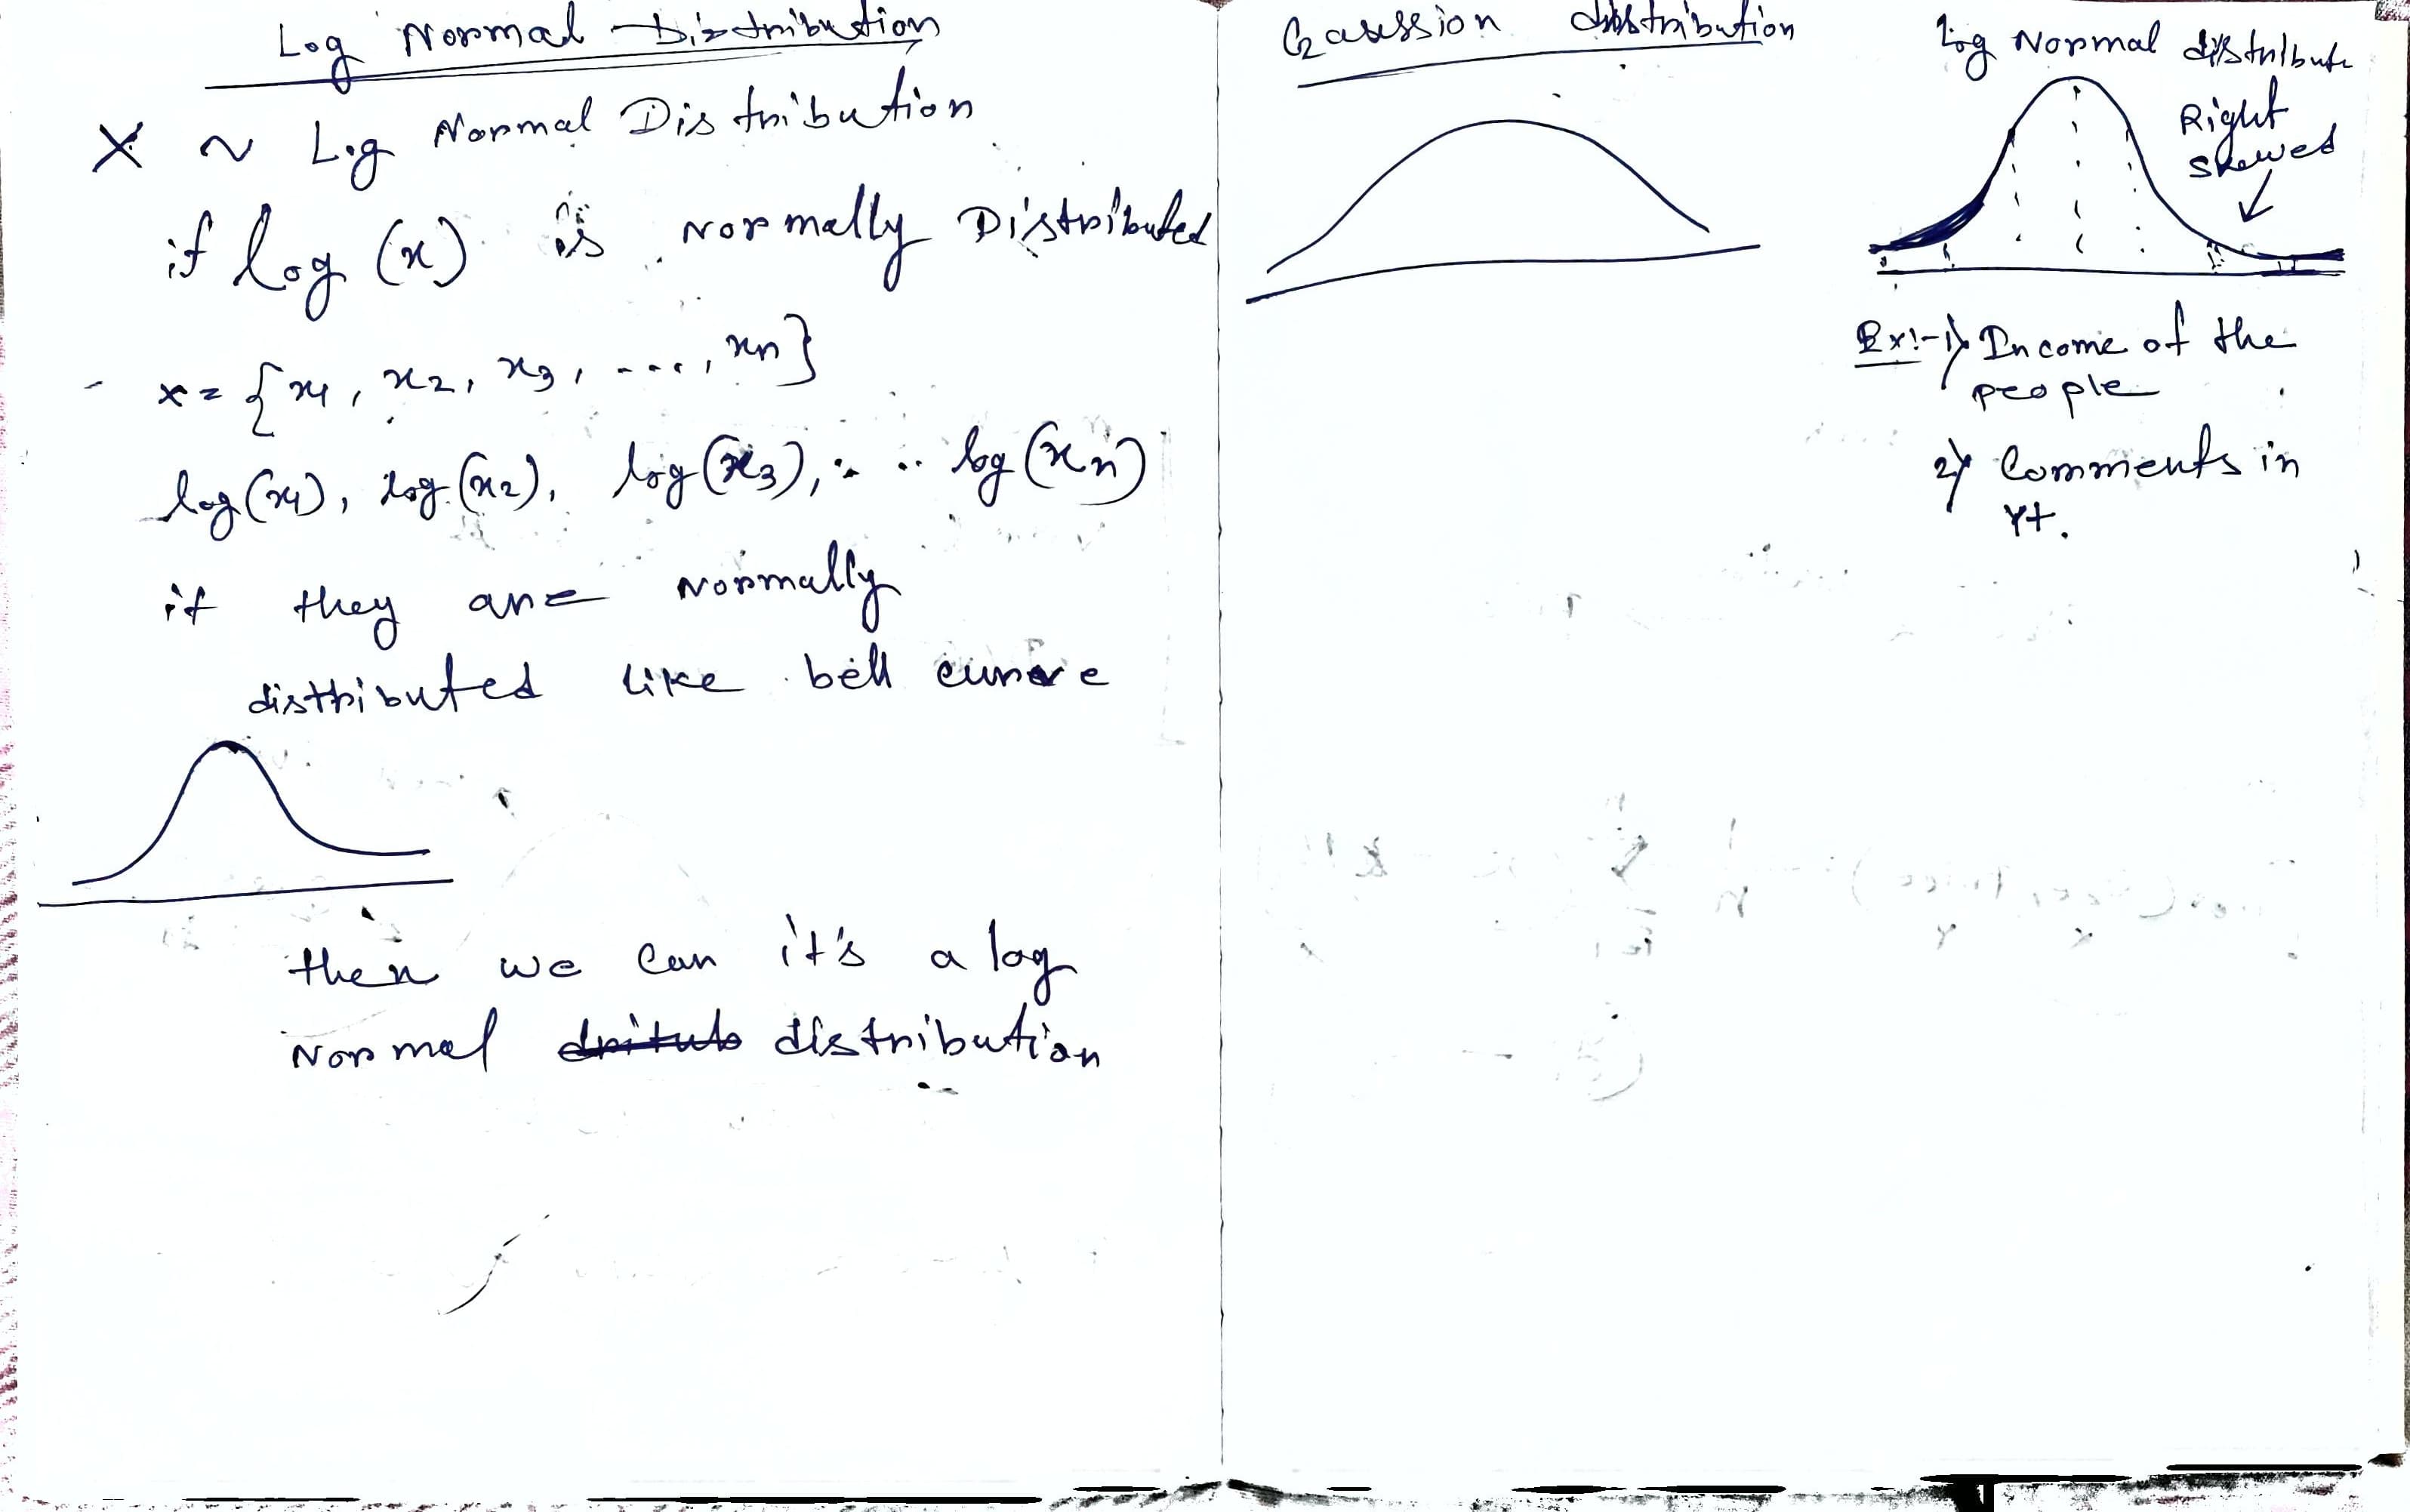 Log Normal Distribution
X ~ Log Normal Distribution
if log (x) is Normally Distributed
x = {x1, x2, x3, ...., xn}
log(x1), log(x2), log(x3), .... log(xn)
if they are Normally
distributed like bell curve
then we can it's a log
Normal distribution
Gaussion distribution
Log Normal distribute
Right
skewed
Ex:- 1) Income of the
people
2) Comments in
Yt.